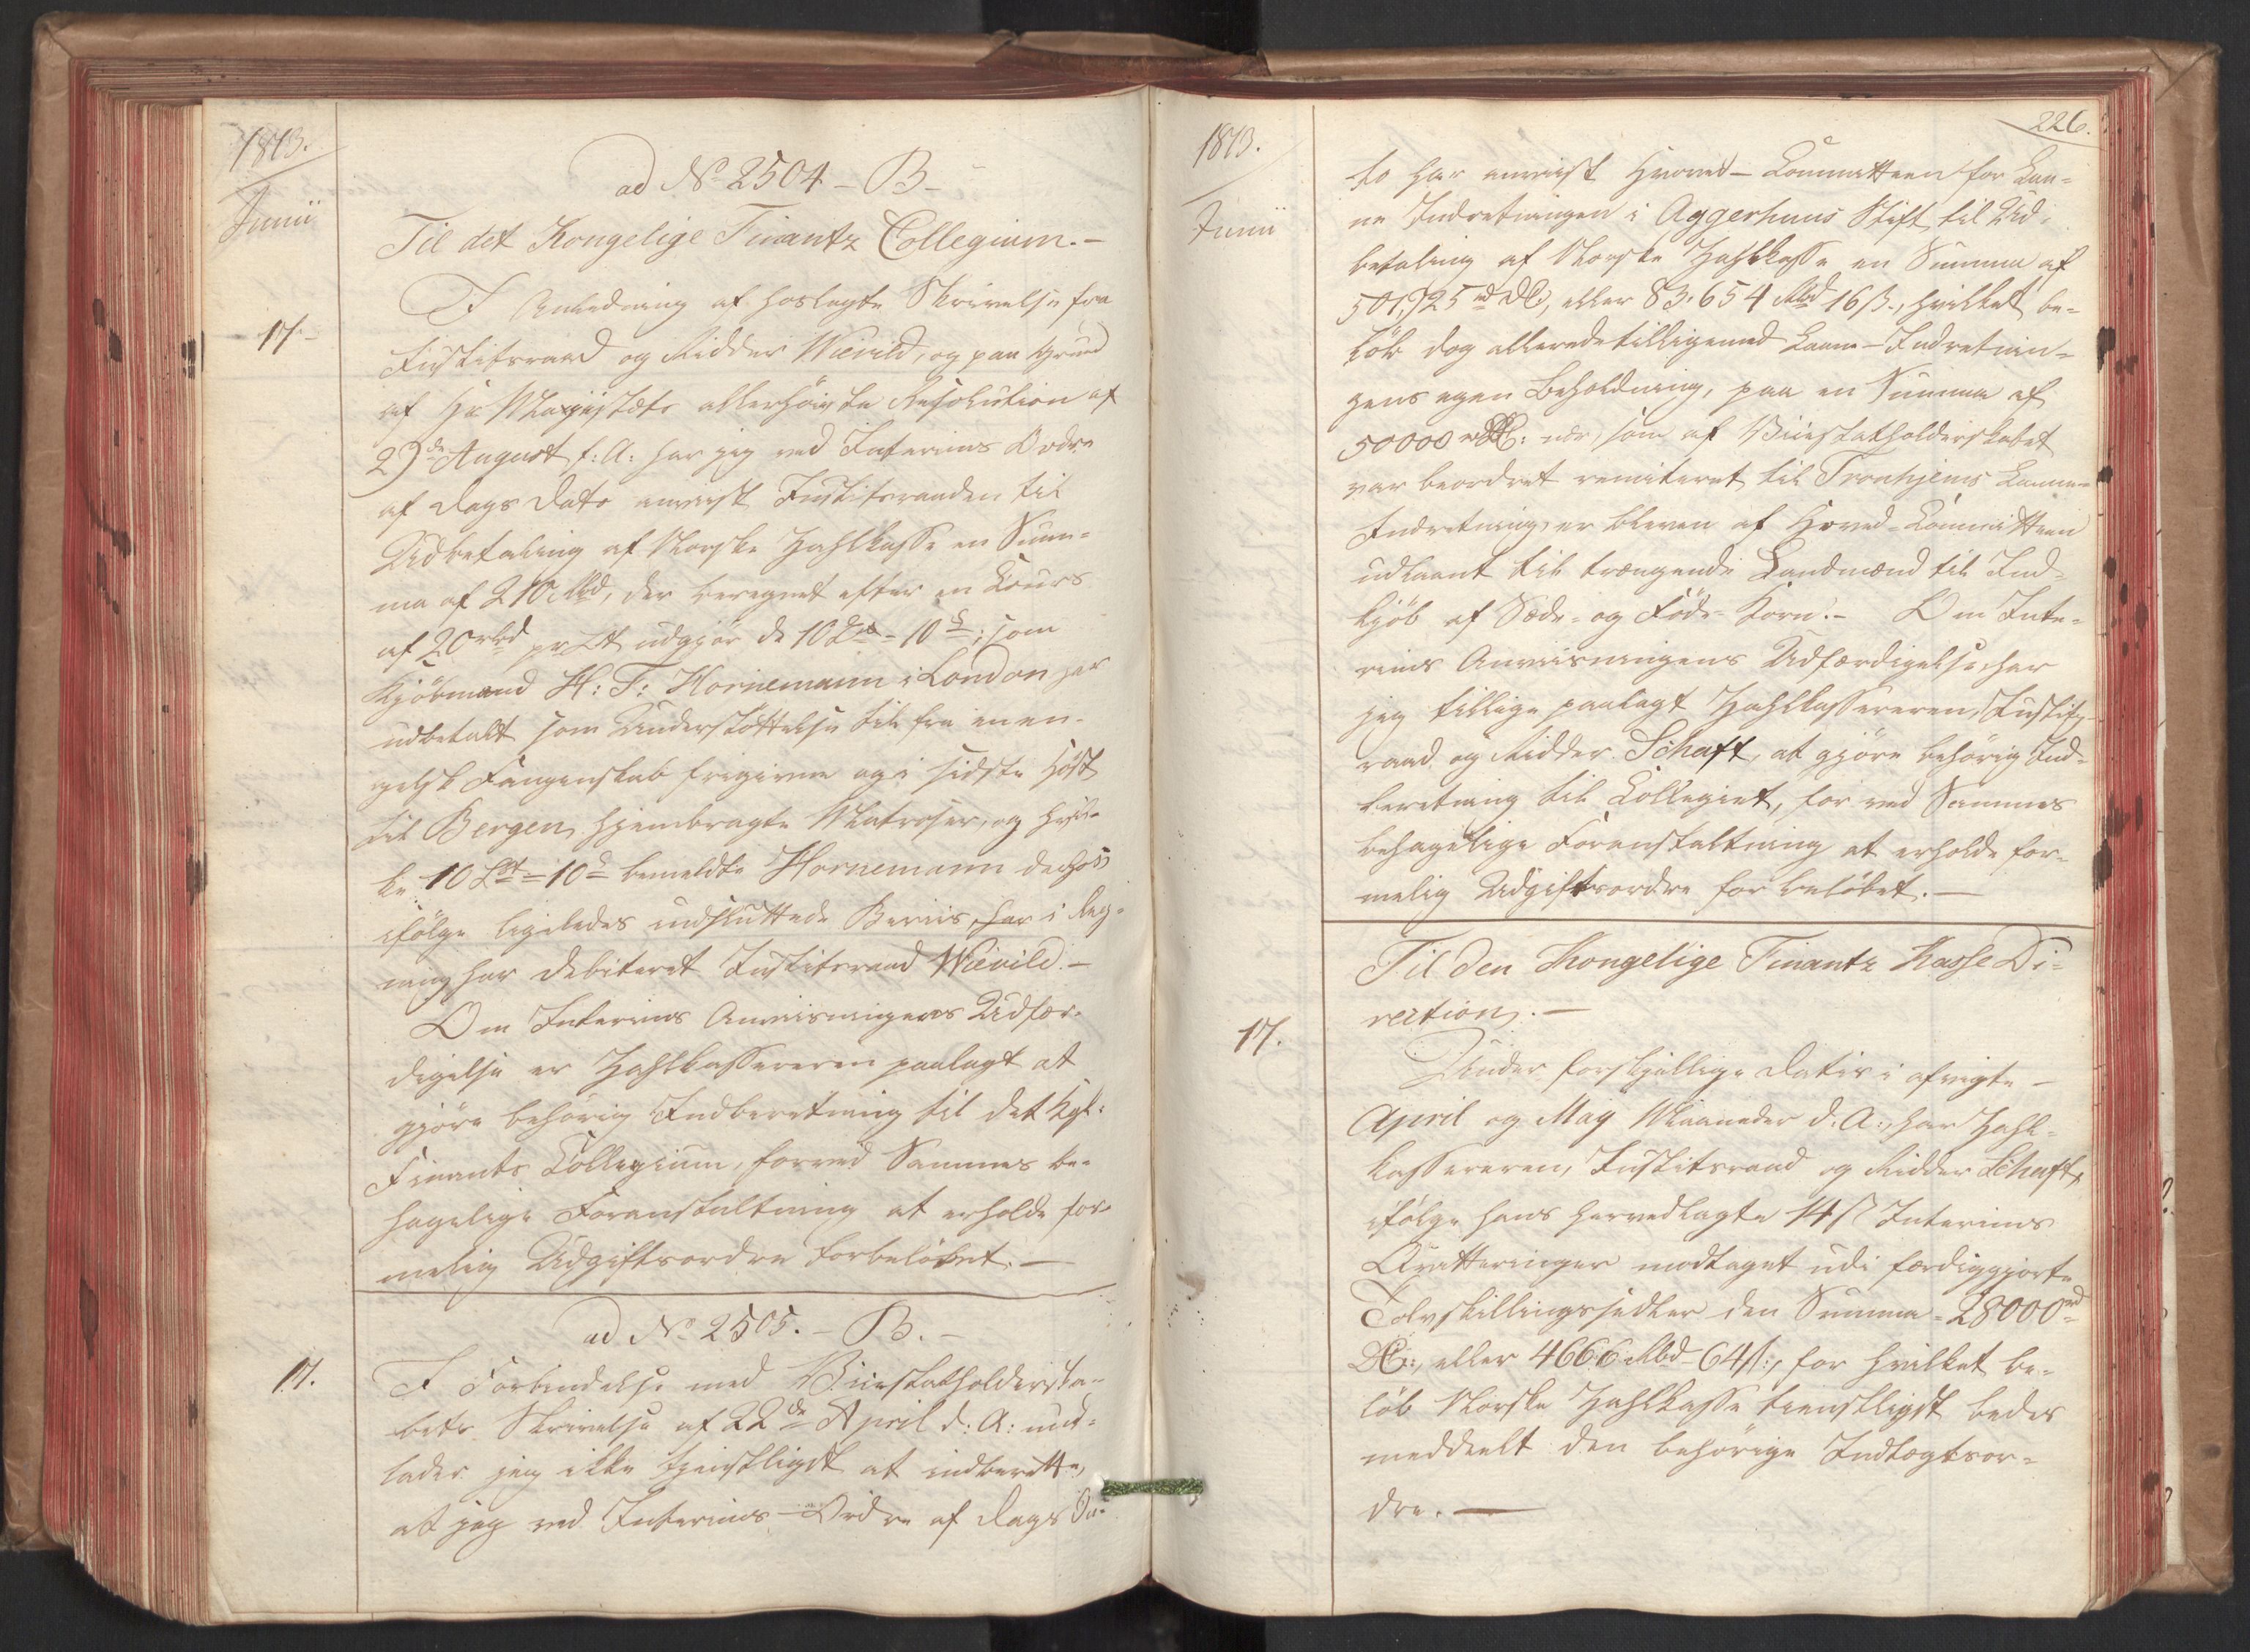 1813.
Junii
ad No 2504 - B -
Til det Kongelige Finantz Collegium. -
17 -
I Anledning af hoslagte Skrivelse fra
Justitsraad og Ridder Wievild, og paa Grund
af Hs Majestæts allerhöieste Resolution af
29de August f: A: har jeg ved Interims Ordre
af Dags Dato anviist Justitsraaden til
Udbetaling af Norske Zahlkasse en Sum-
ma af 210 Rbd, der beregnet efter en Cours
af 20 rbd pr £ udgjör de 10 £ - 10 s; som
Kjöbmand H: F: Hornemann i London har
udbetalt som Understöttelse til fra en en-
gelsk Fangenskab frigivne og i sidste Höst
til Bergen hjembragte Matroser, og hvil-
ke 10 £ = 10 s bemeldte Hornemann
ifölge ligeledes indsluttede Beviis har i Reg-
ning har debiteret Justitsraad Wievild. -
Om Interims Anviisningens Udfær-
digelse er Zahlkassereren paalagt at
gjöre behörig Indberetning til det Kgl:
Finants Collegium, for ved Sammes be-
hagelige Foranstaltning at erholde for-
melig Udgiftsordre for belöbet. -
ad No 2505. - B. -
17.
I Forbindelse med Vicestatholderska-
bets Skrivelse af 22de April d: A: und-
lader jeg ikke tjenstligst at indberette,
at jeg ved Interims - Ordre af Dags Da-
1813.
Junii
226.
to har anviist Hoved - Committeen for Laa-
ne Indretningen i Aggerhuus Stift til Ud-
betaling af Norske Zahlkasse en Summa af
501,925 rd DC, eller 83,654 Rbd 16 ß., hvilket be-
löb dog allerede tilligemed Laane - Indretnin-
gens egen Beholdning, paa en Summa af
50000 rd DC: nær, som af Vicestatholderskabet
var beordret remitteret til Tronhjems Laane-
Indretning, er bleven af Hoved - Committeen
udlaant til trængende Landmænd til Ind-
kjöb af Sæde- og Föde- Korn. - Om Inte-
rims Anviisningens Udfærdigelse har
jeg tillige paalagt Zahlkassereren, Justits-
raad og Ridder Schaft, at gjöre behörig Ind-
beretning til Collegiet, for ved Sammes
behagelige Foranstaltning at erholde for-
melig Udgiftsordre for belöbet. -
Til den Kongelige Finantz Kasse Di-
rection. -
17.
Under forskjellige Datis i afvigte -
April og May Maaneder d. A:, har Zahl-
kassereren, Justitsraad og Ridder Schaft,
ifölge hans hervedlagte 14 Interims
Qvitteringer modtaget udi færdiggjorte
Tolvskillingssedler den Summa = 28000 rd
DC:, eller 4666 Rbd - 64 ß:, for hvilket be-
löb Norske Zahlkasse tienstligst bedes
meddeelt den behörige Indtægtsor-
dre. -